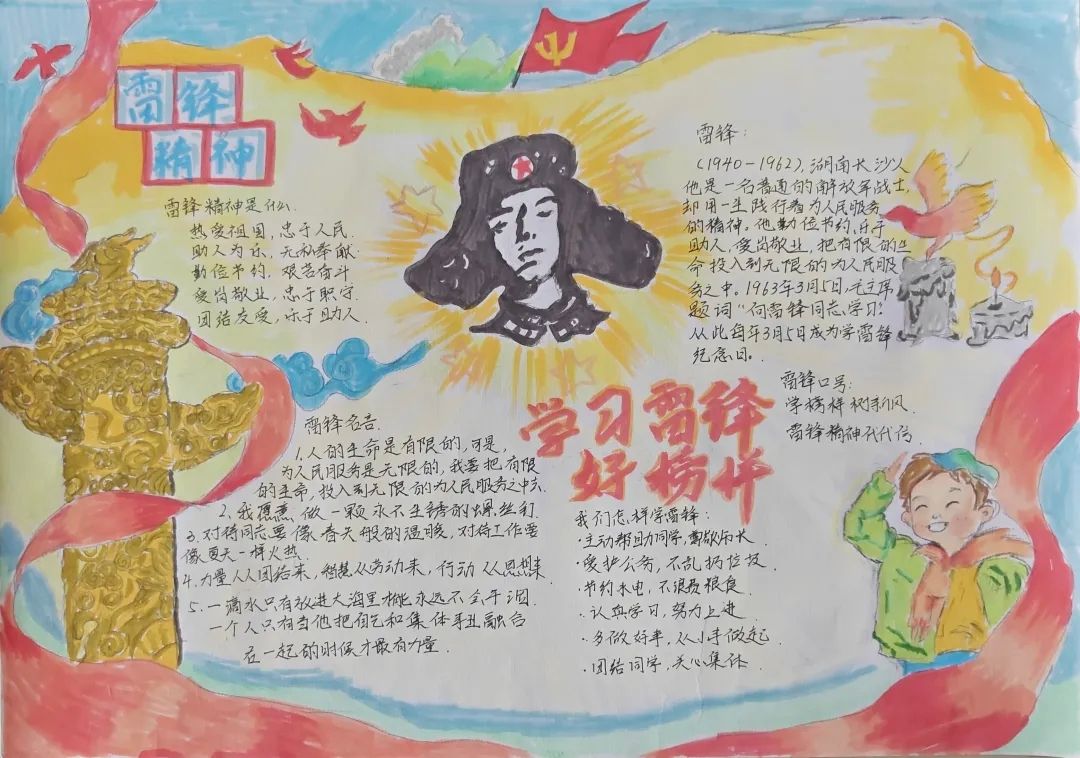 雷锋
精神
雷锋精神是什么
热爱祖国，忠于人民
助人为乐，无私奉献
勤俭节约，艰苦奋斗
爱岗敬业，忠于职守
团结友爱，乐于助人
雷锋：
（1940-1962），湖南长沙人
他是一名普通的解放军战士，
却用一生践行着为人民服务
的精神。他勤俭节约，乐于
助人，爱岗敬业，把有限的生
命投入到无限的为人民服
务之中。1963年3月5日，毛主席
题词“向雷锋同志学习”
从此每年3月5日成为学雷锋
纪念日。
雷锋口号：
学榜样树新风
雷锋精神代代传
学习雷锋
好榜样
雷锋名言
1.人的生命是有限的，可是，
为人民服务是无限的，我要把有限
的生命，投入到无限的为人民服务之中去
2、我愿意做一颗永不生锈的螺丝钉
3.对待同志要像春天般的温暖，对待工作要
像夏天一样火热.
4.力量从团结来，智慧从劳动来，行动从思想来
5.一滴水只有放进大海里才能永远不会干涸
一个人只有当他把自己和集体事业融合
在一起的时候才最有力量
我们怎样学雷锋：
·主动帮助同学，尊敬师长
·爱护公务，不乱扔垃圾
·节约水电，不浪费粮食
·认真学习，努力上进
·多做好事，从小事做起
·团结同学，关心集体